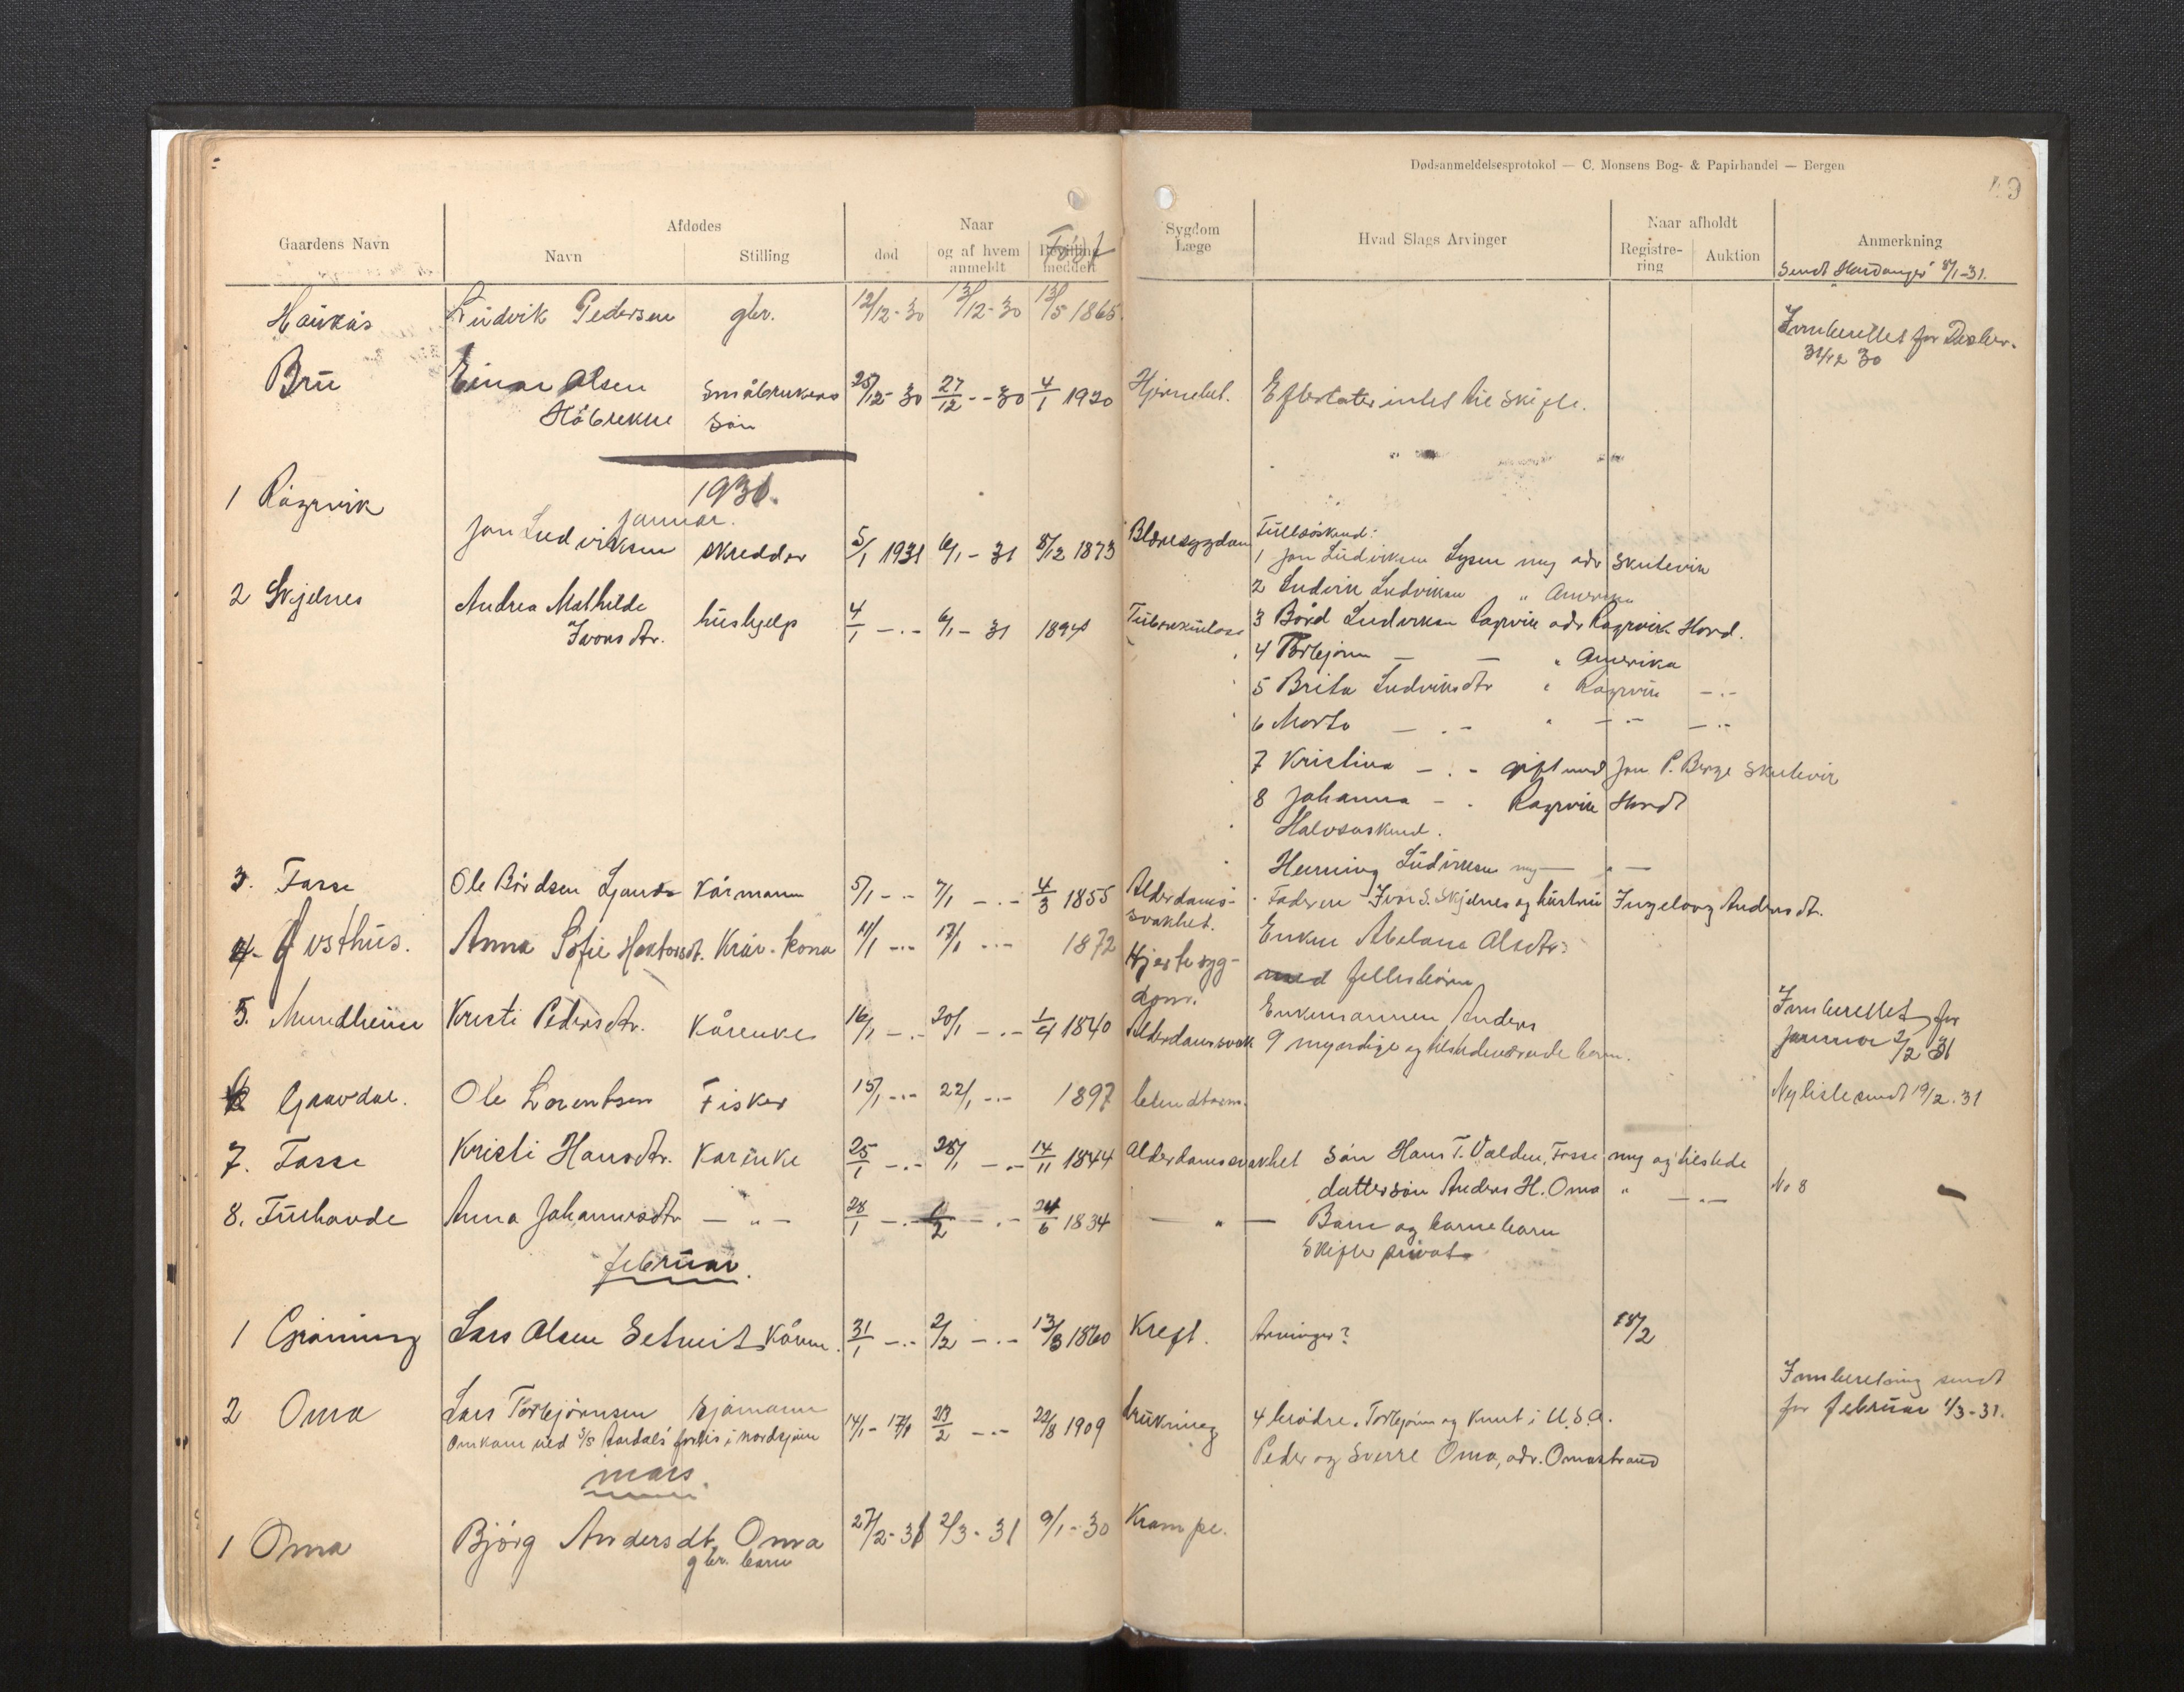 Dødsanmeldelsesprotokol — C. Monsens Bog- & Papirhandel — Bergen
Gaardens Navn
Afdødes
Navn
Stilling
Naar
død
og af hvem anmeldt
Bevilling meddelt
Født
Sygdom Læge
Hvad Slags Arvinger
Naar afholdt
Registrering
Auktion
Anmerkning
Sendt Hardanger 8/1-31.
Haukås Ludvik Pedersen gbr. 12/12-30 13/12-30 13/5 1865
Innberettet for Desbr.
31/12 30
Bru Einar Olsen småbrukers 25/12-30 27/12 - -30 4/1 1920 Hjernebet. Efterlater intet til skifte.
Håbrekke søn
1931.
januar.
1 Rågrvik Jon Ludviksen skredder 5/1 1931 6/1 - 31 8/12 1873 Blæresygdom Fullsøskend:
1 Jon Ludviksen Lysen myg adr Skutevik
2 Ludvik Ludviksen " Amerika
2 Skjelnes Andrea Mathilde hushjelp 4/1 -.- 6/1 - 31 1894 Tuberkulose 3 Bård Ludviksen Ragrvik adr Ragrvik Hard.
Ivarsdtr.
4 Torbjørn — — " Amerika
5 Brita Ludviksdtr " Ragrvik -.-
6 Marta — .- " -.- -.-
7 Kristina -.- gift med Jon P. Berge Skutevik
8 Johanna - . Ragrvik Hard
Halvsøskend.
Henning Ludviksen myg — " —
3. Fosse Ole Bårdsen Ljones Kårmann 5/1 -.- 7/1 -.- 4/3 1855 Alderdoms-
svakhet.
Faderen Ivar S. Skjelnes og hustru Ingeborg Andersdt.
4. Austhus. Anna Sofie Hextorsdt. Kår-kona 11/1 -.- 17/1 -.- 1872 Hjertesyg-
dom.
Enken Abelone Olsdtr:
med fellesbørn
5. Mundheim Kristi Pedersdtr. Kårenke 16/1 -.- 20/1 -.- 1/4 1840 Alderdomssvak
Enkemannen Anders
9 myndige og tilstedeværende barn.
Innberettet for
januar 2/2 31
6 Gravdal. Ole Lorentsen Fisker 15/1 -.- 22/1 -.- 1897 blindtarm.
Ny liste sendt 19/2.31
7. Fosse Kristi Hansdtr. Kårenke 25/1 -.- 28/1 -.- 14/11 1844 Alderdomssvakhet søn Hans T. Valden, Fosse myg og tilstede
dattersøn Anders H. Oma " -.-
No 8
8. Furhovde Anna Johannesdtr — " — 28/1 -.- 1/2 -.- 24/6 1834 — " — Barn og barnebarn
Skifter privat
februar.
1 Gravning Lars Olsen Setveit Kårm. 31/1 -.- 2/2 -.- 13/3 1860 Kreft. Arvinger? 18/2
2 Oma Lars Torbjørnsen sjømann 14/1 - 17/1 23/2 -.- 22/8 1909 drukning 4 brødre. Torbjørn og Knut i U.S.A.
Omkom ved forlis i nordsjøen
Peder og Sverre Oma, adr. Omastrand
Innberetning sendt
for februar 1/3-31.
mars.
1 Oma Bjørg Andersdt. Oma 27/2-31 2/3-31 9/1-30 Krampe.
gbr. barn